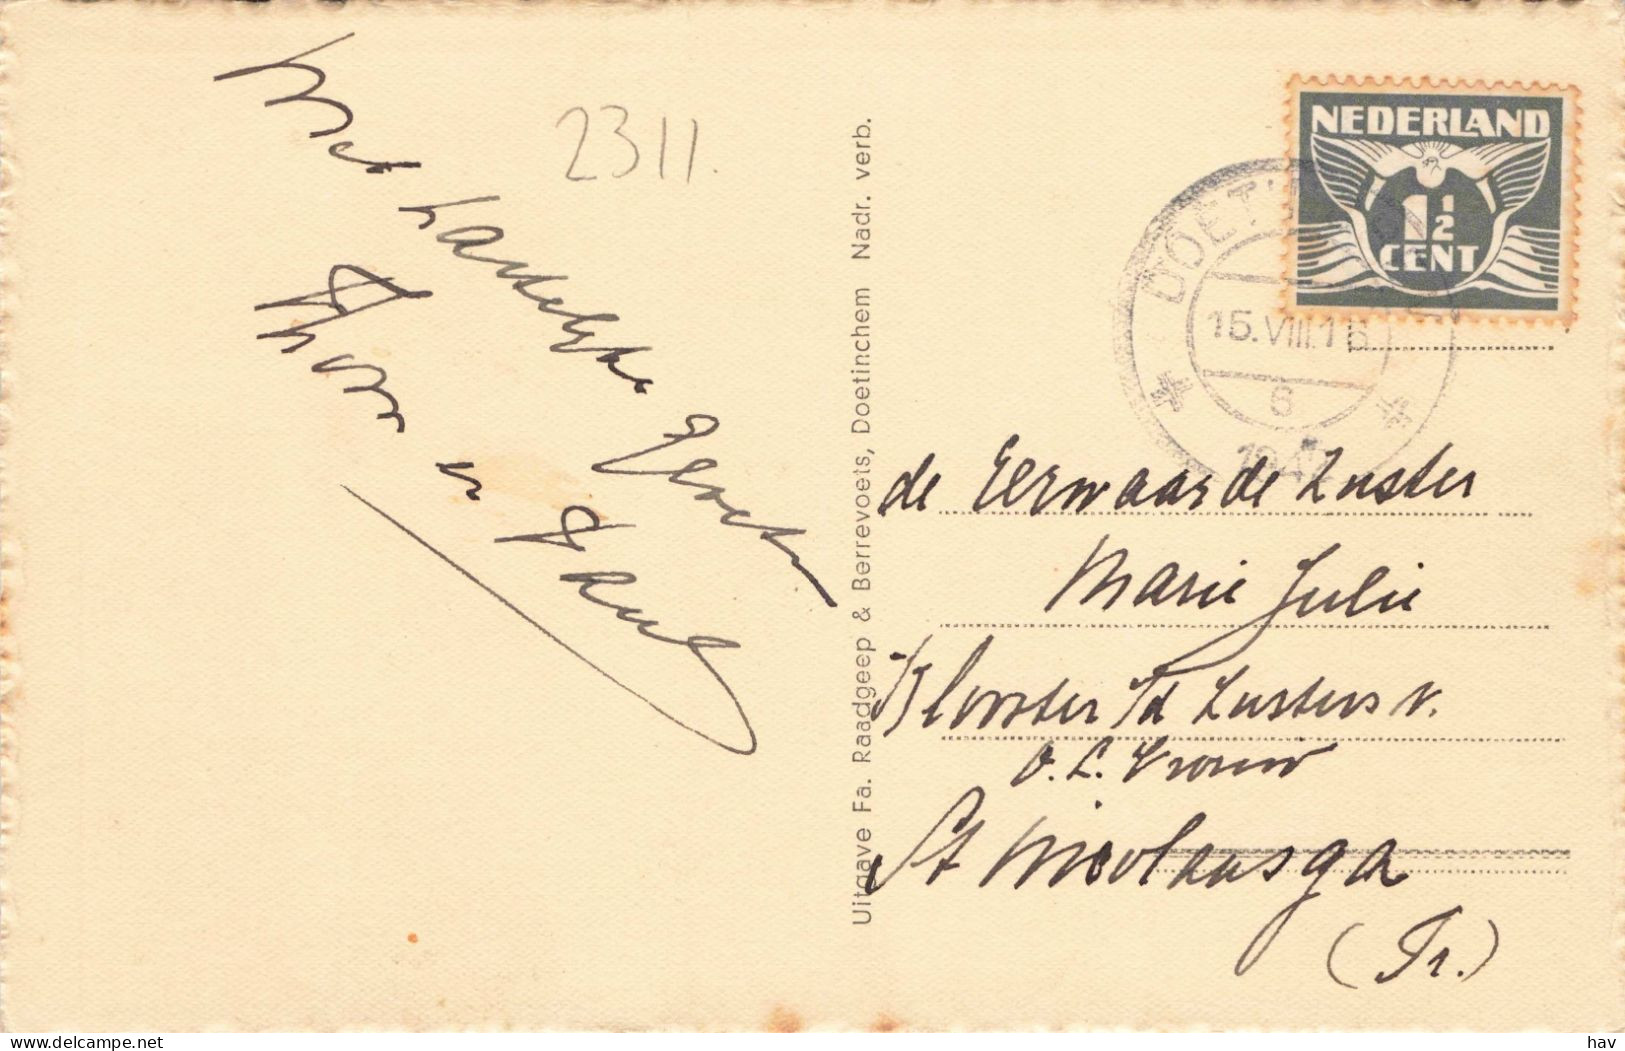 Met hartelijke Groeten
Thoos en Fraul
2311.
Uitgave Fa. Raadgeep & Berrevoets, Doetinchem Nadr. verb.
NEDERLAND
1½
CENT
15.VIII.16
8
de Eerwaarde Zuster
Marie Julie
Klooster v/d Zusters v.
O. L. Vrouw
St Nicolaasga
(Fr.)
delcampe.net
hav